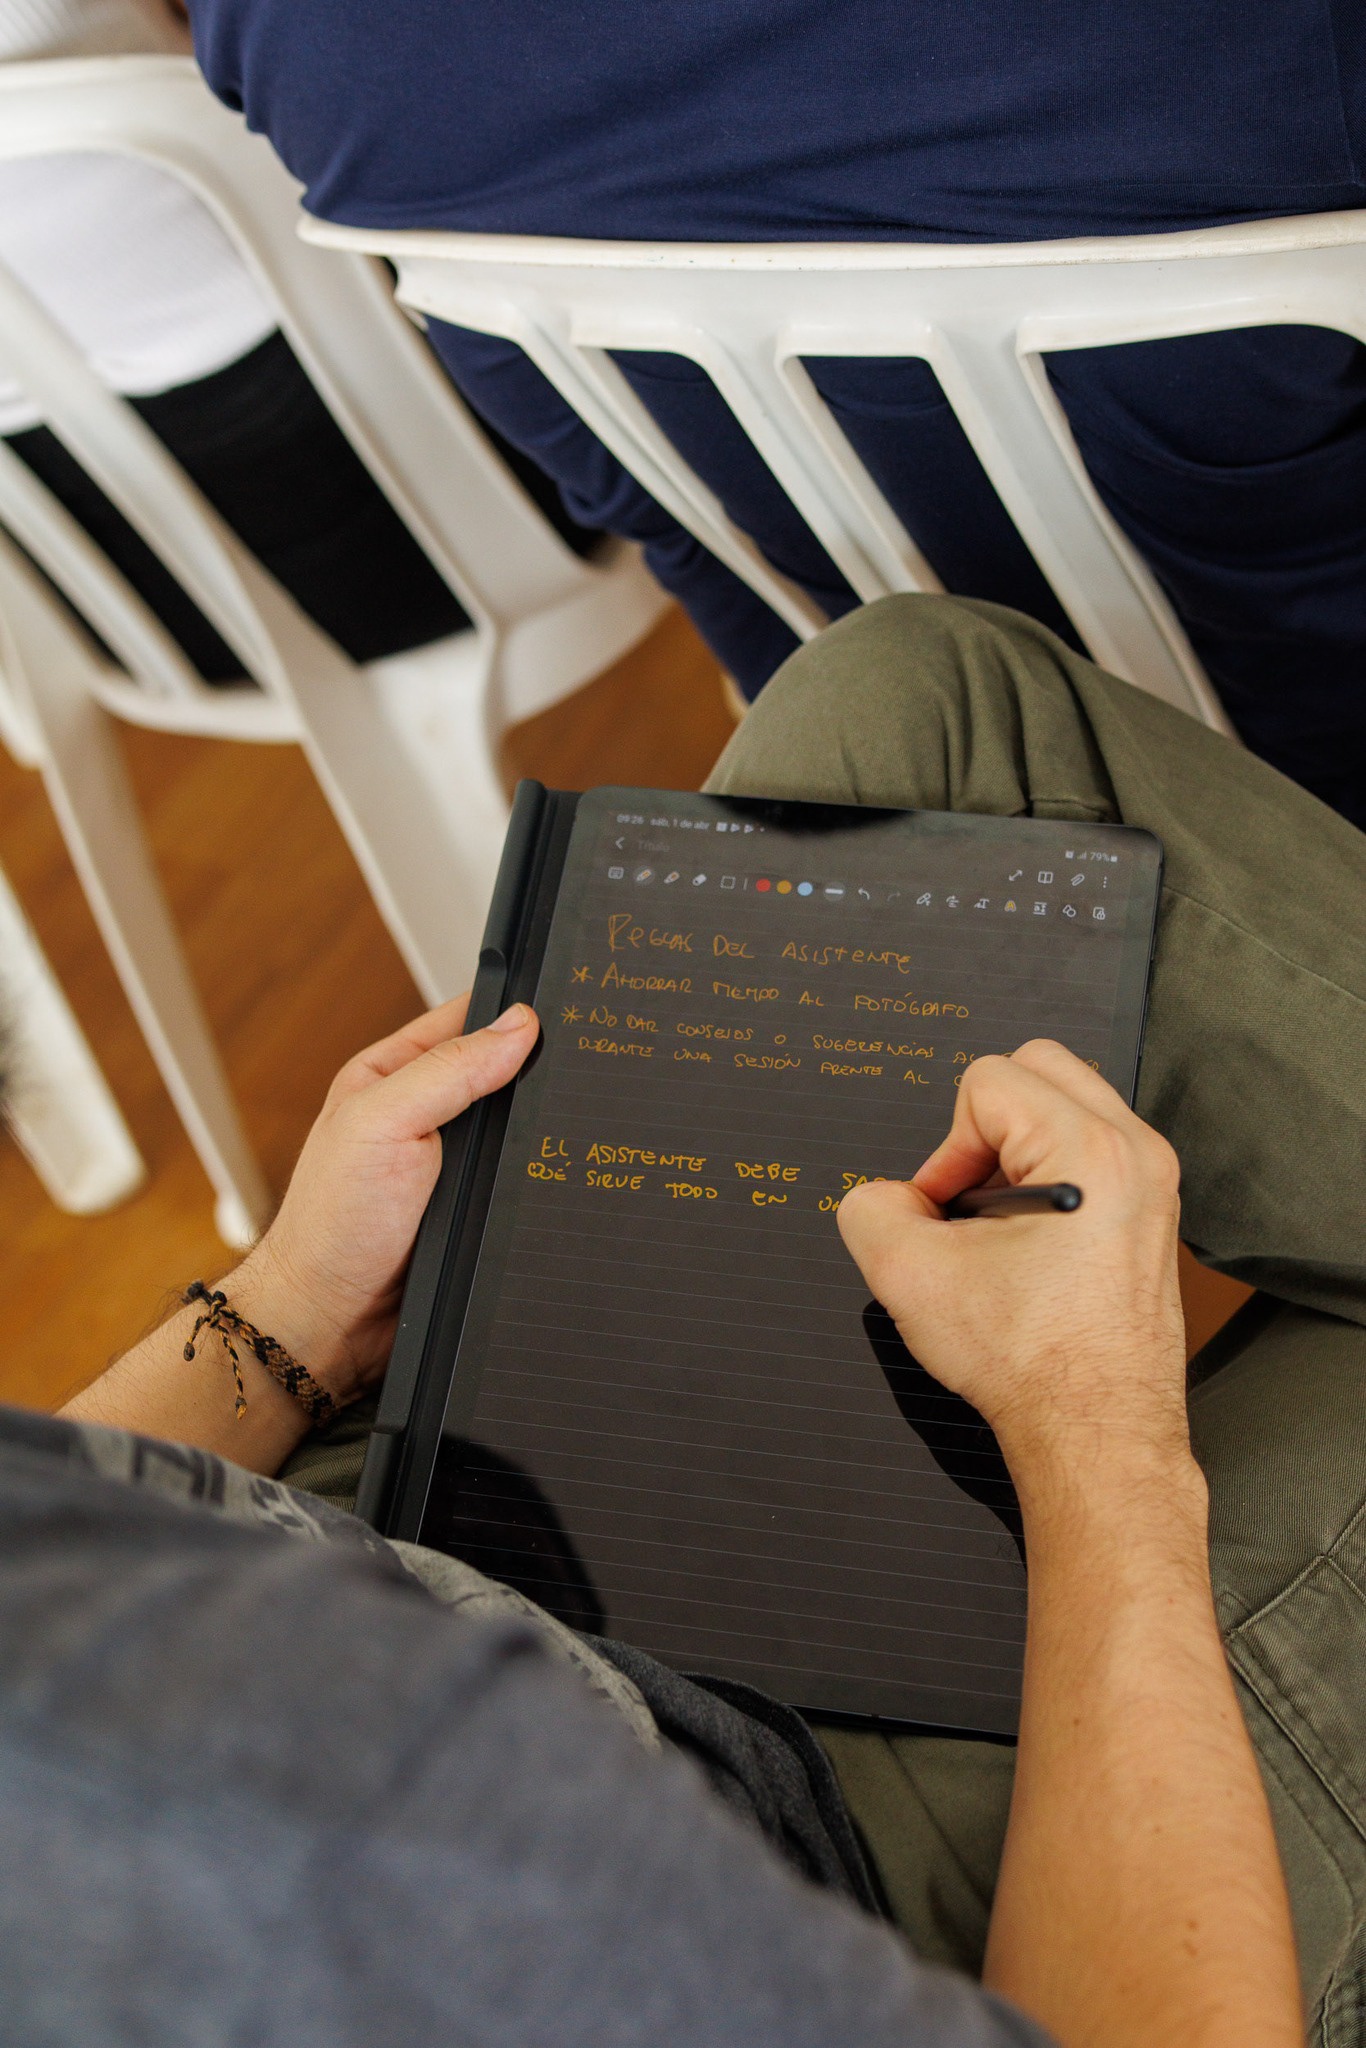 09:26 sáb, 1 de abr
79%
Título
REGLAS DEL ASISTENTE
* AHORRAR TIEMPO AL FOTÓGRAFO
* NO DAR CONSEJOS O SUGERENCIAS AL
DURANTE UNA SESIÓN FRENTE AL
EL ASISTENTE DEBE
QUÉ SIRVE TODO EN